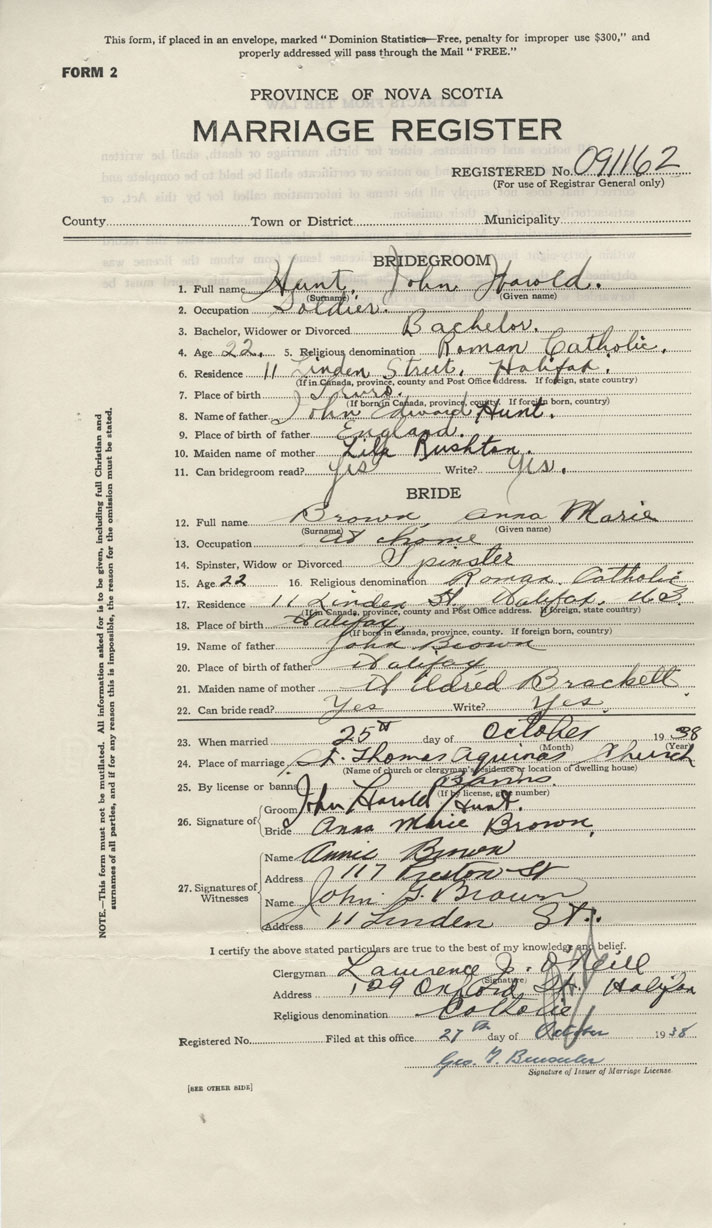 This form, if placed in an envelope, marked "Dominion Statistics—Free, penalty for improper use $300," and
properly addressed will pass through the Mail "FREE."
FORM 2
PROVINCE OF NOVA SCOTIA
MARRIAGE REGISTER
REGISTERED No. 091162
(For use of Registrar General only)
County Town or District Municipality
BRIDEGROOM
1. Full name Hunt, John Harold.
(Surname) (Given name)
2. Occupation Soldier.
3. Bachelor, Widower or Divorced Bachelor.
4. Age 22. 5. Religious denomination Roman Catholic.
6. Residence 11 Linden Street, Halifax.
(If in Canada, province, county and Post Office address. If foreign, state country)
7. Place of birth Truro.
(If born in Canada, province, county. If foreign born, country)
8. Name of father John Edward Hunt.
9. Place of birth of father England.
10. Maiden name of mother Lila Rushton.
11. Can bridegroom read? yes Write? yes.
BRIDE
12. Full name Brown, Anna Marie
(Surname) (Given name)
13. Occupation at home
14. Spinster, Widow or Divorced Spinster
15. Age 22 16. Religious denomination Roman Catholic
17. Residence 11 Linden St. Halifax, N.S.
(If in Canada, province, county and Post Office address. If foreign, state country)
18. Place of birth Halifax,
(If born in Canada, province, county. If foreign born, country)
19. Name of father John Brown
20. Place of birth of father Halifax
21. Maiden name of mother Brackett
22. Can bride read? Yes Write? Yes.
23. When married 25th day of October 1938
(Month) (Year)
24. Place of marriage St. Thomas Aquinas Church
(Name of church or clergyman's residence or location of dwelling house)
25. By license or banns Banns.
(If by license, give number)
26. Signature of Groom John Harold Hunt.
Bride Anna Marie Brown.
27. Signatures of Witnesses
Name Annie Brown
Address 117 Preston St
Name John G. Brown
Address 11 Linden St.
I certify the above stated particulars are true to the best of my knowledge and belief.
Clergyman Lawrence J. O'Neill
(Signature)
Address 129 Oxford St. Halifax
Religious denomination Catholic
Registered No. Filed at this office 27th day of October 1938
Geo. F.
Signature of Issuer of Marriage License.
[SEE OTHER SIDE]
NOTE.—This form must not be mutilated. All information asked for is to be given, including full Christian and
surnames of all parties, and if for any reason this is impossible, the reason for the omission must be stated.